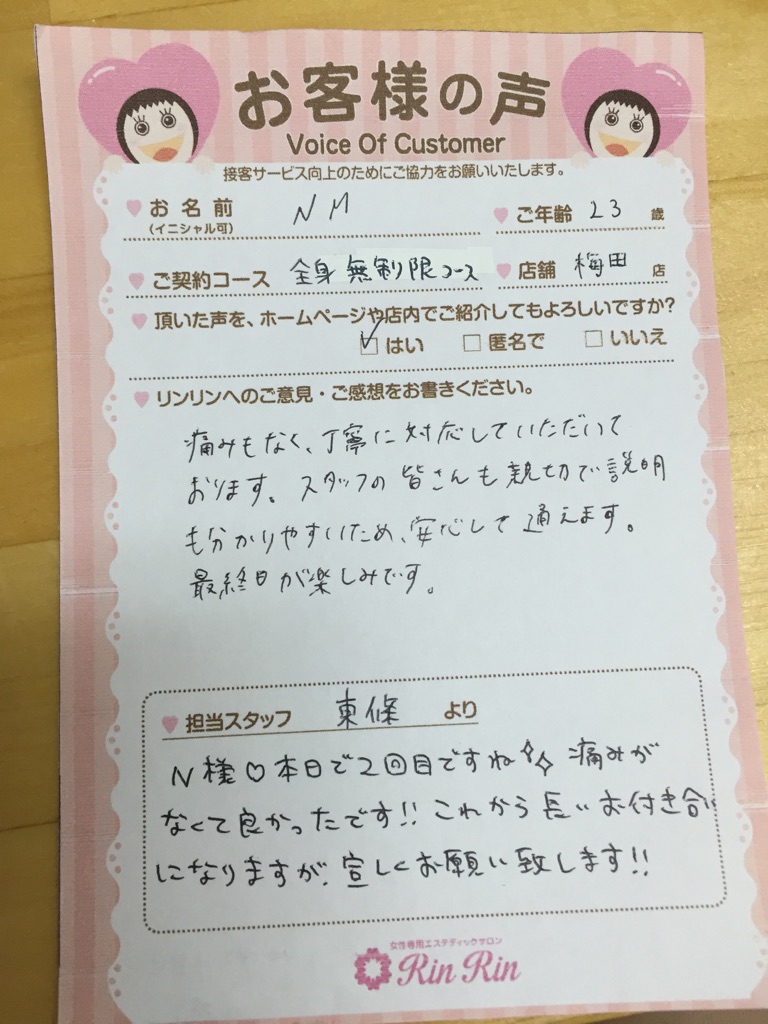 お客様の声
Voice Of Customer
接客サービス向上のためにご協力をお願いいたします。
お名前 N M
(イニシャル可)
ご年齢 23 歳
ご契約コース 全身無制限コース
店舗 梅田 店
頂いた声を、ホームページや店内でご紹介してもよろしいですか?
はい 匿名で いいえ
リンリンへのご意見・ご感想をお書きください。
痛みもなく、丁寧に対応していただいて
おります。スタッフの皆さんも親切で説明
も分かりやすいため、安心して通えます。
最終日が楽しみです。
担当スタッフ 東條 より
N様♡本日で2回目ですね✨ 痛みが
なくて良かったです!! これから長いお付き合い
になりますが、宜しくお願い致します!!
女性専用エステティックサロン
Rin Rin